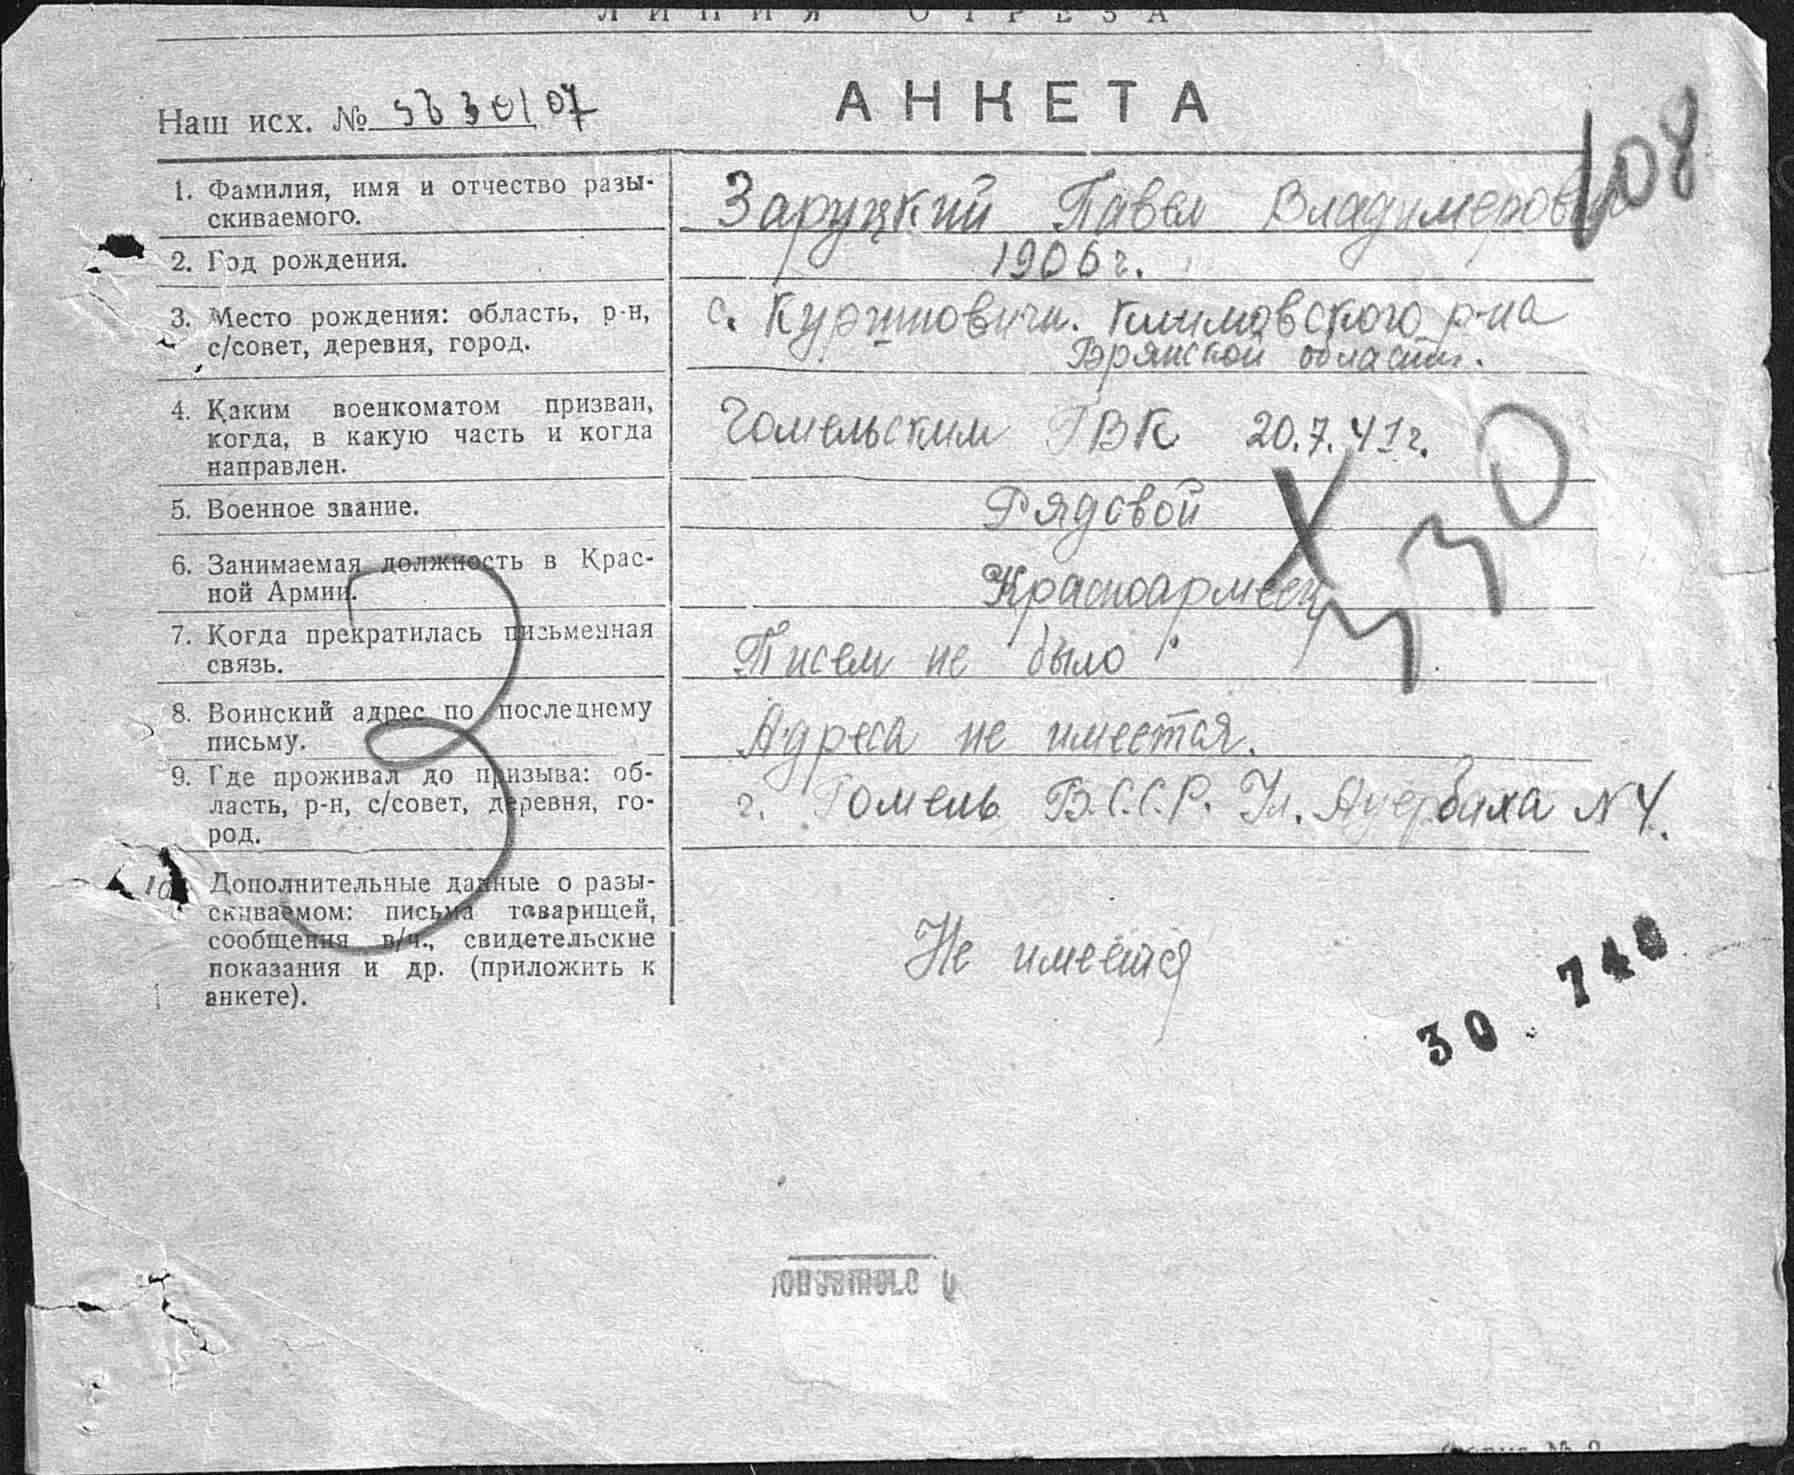 ЛИНИЯ ОТРЕЗА
АНКЕТА
Наш исх. №
108
1. Фамилия, имя и отчество разы-
скиваемого.
Заруцкий Павел
2. Год рождения.
1906 г.
3. Место рождения: область, р-н,
с/совет, деревня, город.
с. Климовского р-на
Брянской области.
4. Каким военкоматом призван,
когда, в какую часть и когда
направлен.
Гомельским ГВК 20.7.41 г.
5. Военное звание.
Рядовой
6. Занимаемая должность в Крас-
ной Армии.
Красноармеец
7. Когда прекратилась письменная
связь.
Писем не было
8. Воинский адрес по последнему
письму.
Адреса не имеется.
9. Где проживал до призыва: об-
ласть, р-н, с/совет, деревня, го-
род.
г. Гомель Б.С.С.Р. Ул. Ауербаха N 4.
10. Дополнительные данные о разы-
скиваемом: письма товарищей,
сообщения в/ч., свидетельские
показания и др. (приложить к
анкете).
Не имеется
З
30 740